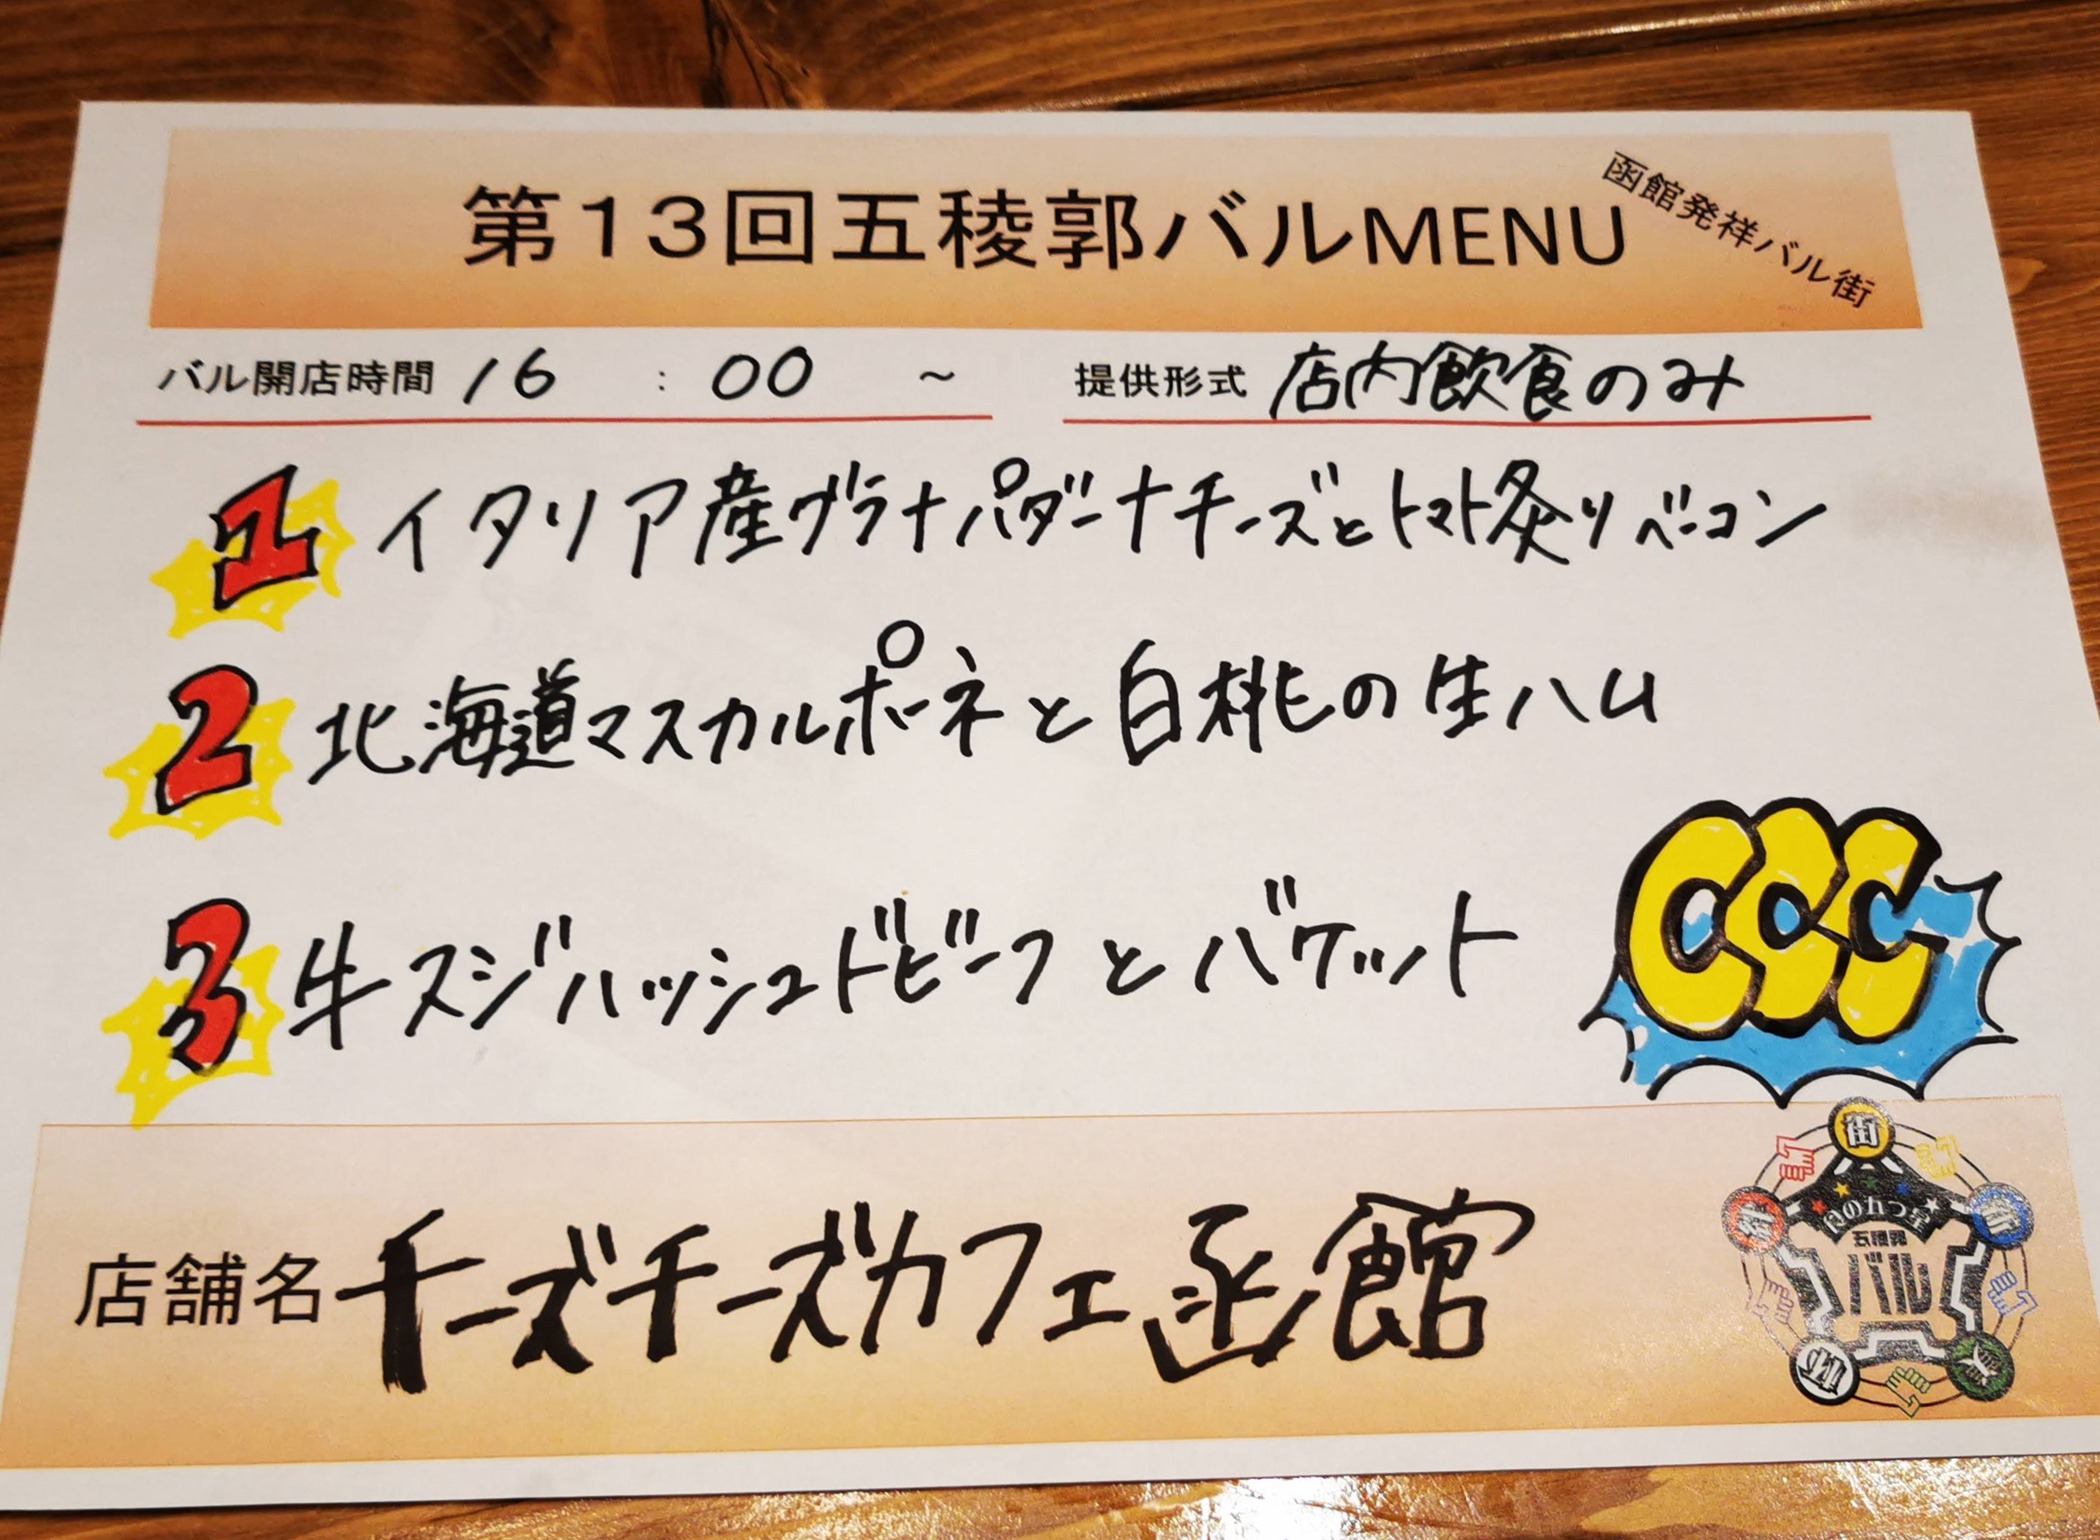 第13回五稜郭バルMENU
函館発祥バル街
バル開店時間 16:00～ 提供形式 店内飲食のみ
1 イタリア産グラナパダーナチーズとトマト炙りベーコン
2 北海道マスカルポーネと白桃の生ハム
3 牛スジハッシュドビーフとバゲット
CCC
店舗名 チーズチーズカフェ函館
街
食の五つ星
五稜郭
バル
杯